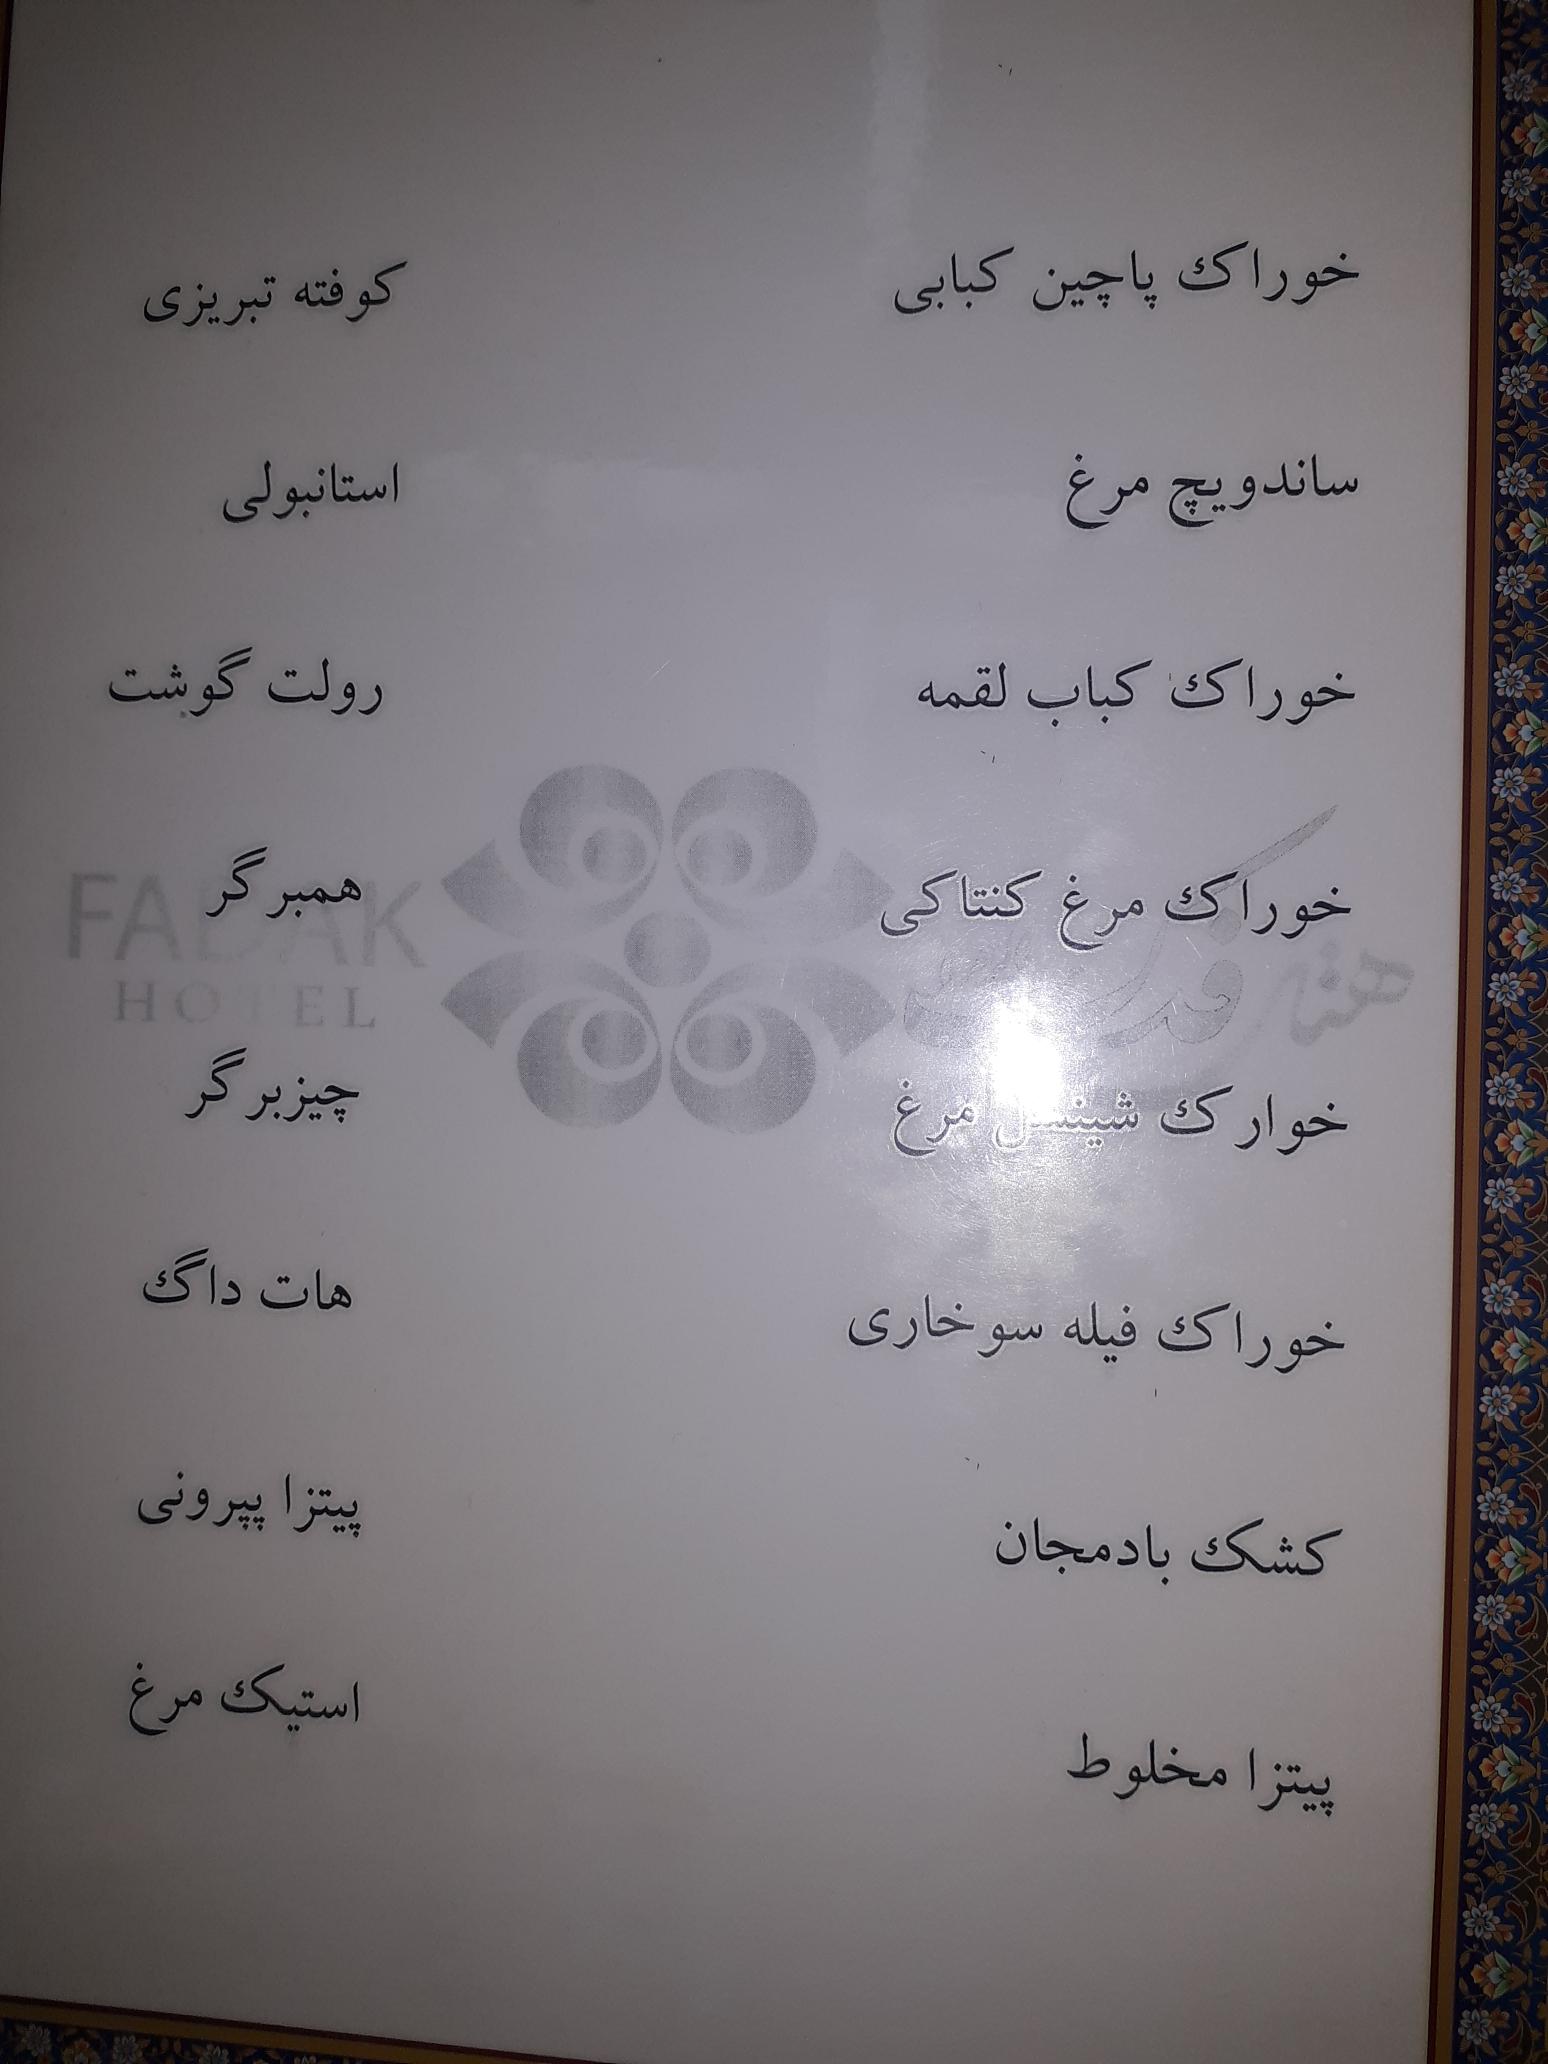 خوراک پاچین کبابی
ساندویچ مرغ
خوراک کباب لقمه
خوراک مرغ کنتاکی
خوارک شینسل مرغ
خوراک فیله سوخاری
کشک بادمجان
پیتزا مخلوط
کوفته تبریزی
استانبولی
رولت گوشت
همبرگر
چیزبرگر
هات داگ
پیتزا پپرونی
استیک مرغ
FADAK
HOTEL